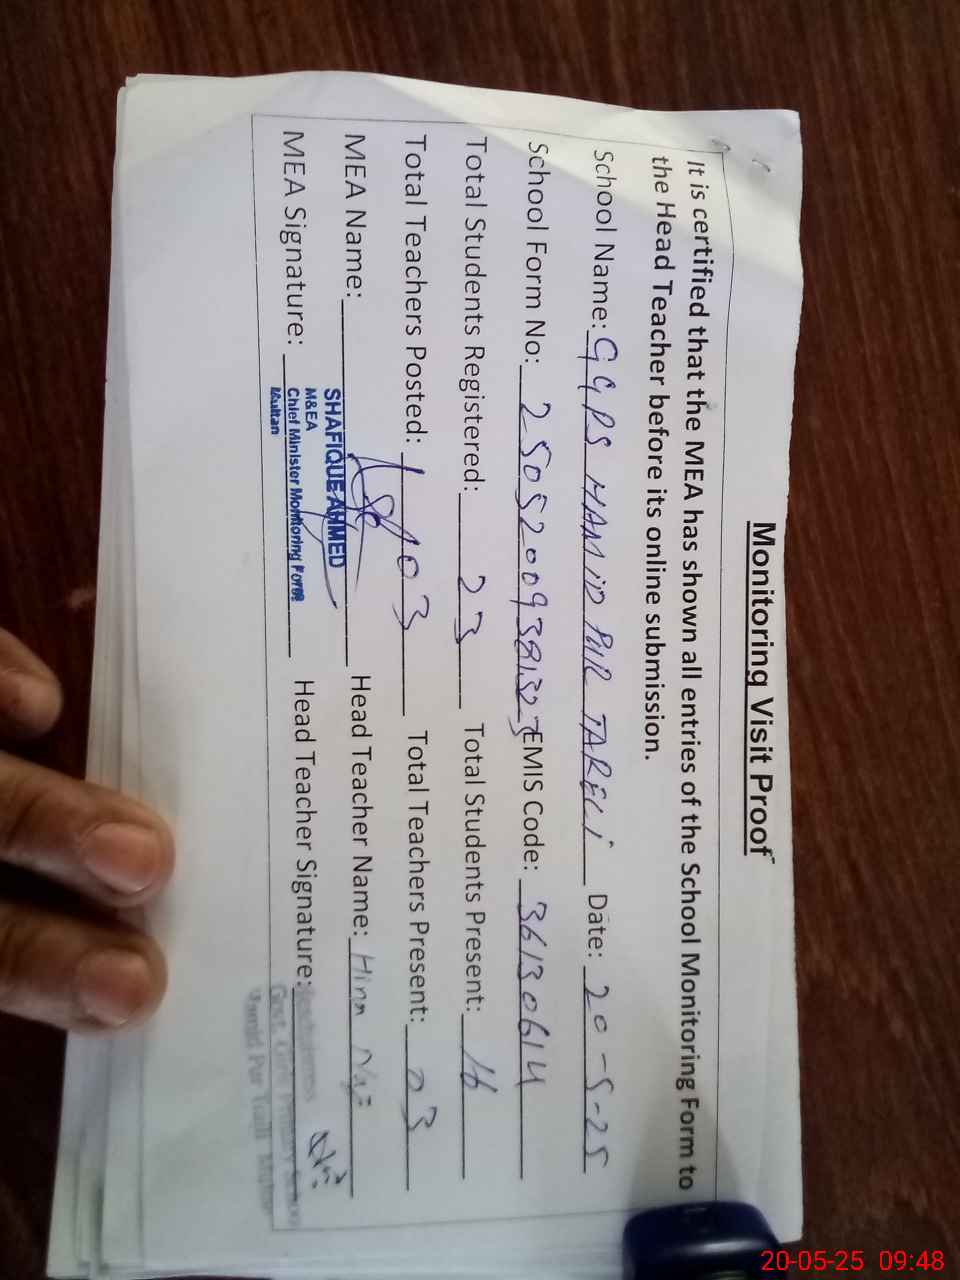 Monitoring Visit Proof
It is certified that the MEA has shown all entries of the School Monitoring Form to
the Head Teacher before its online submission.
School Name: GGPS HAMID PUR TARELI Date: 20-5-25
School Form No: 2505200938132 EMIS Code: 36130614
Total Students Registered: 23 Total Students Present: 16
Total Teachers Posted: 03 Total Teachers Present: 03
MEA Name: Head Teacher Name: Hina
SHAFIQUE AHMED
M&EA
MEA Signature: Head Teacher Signature:
Chief Minister Monitoring Force
Multan
Govt. Girls Primary School
Hamid Pur
20-05-25 09:48